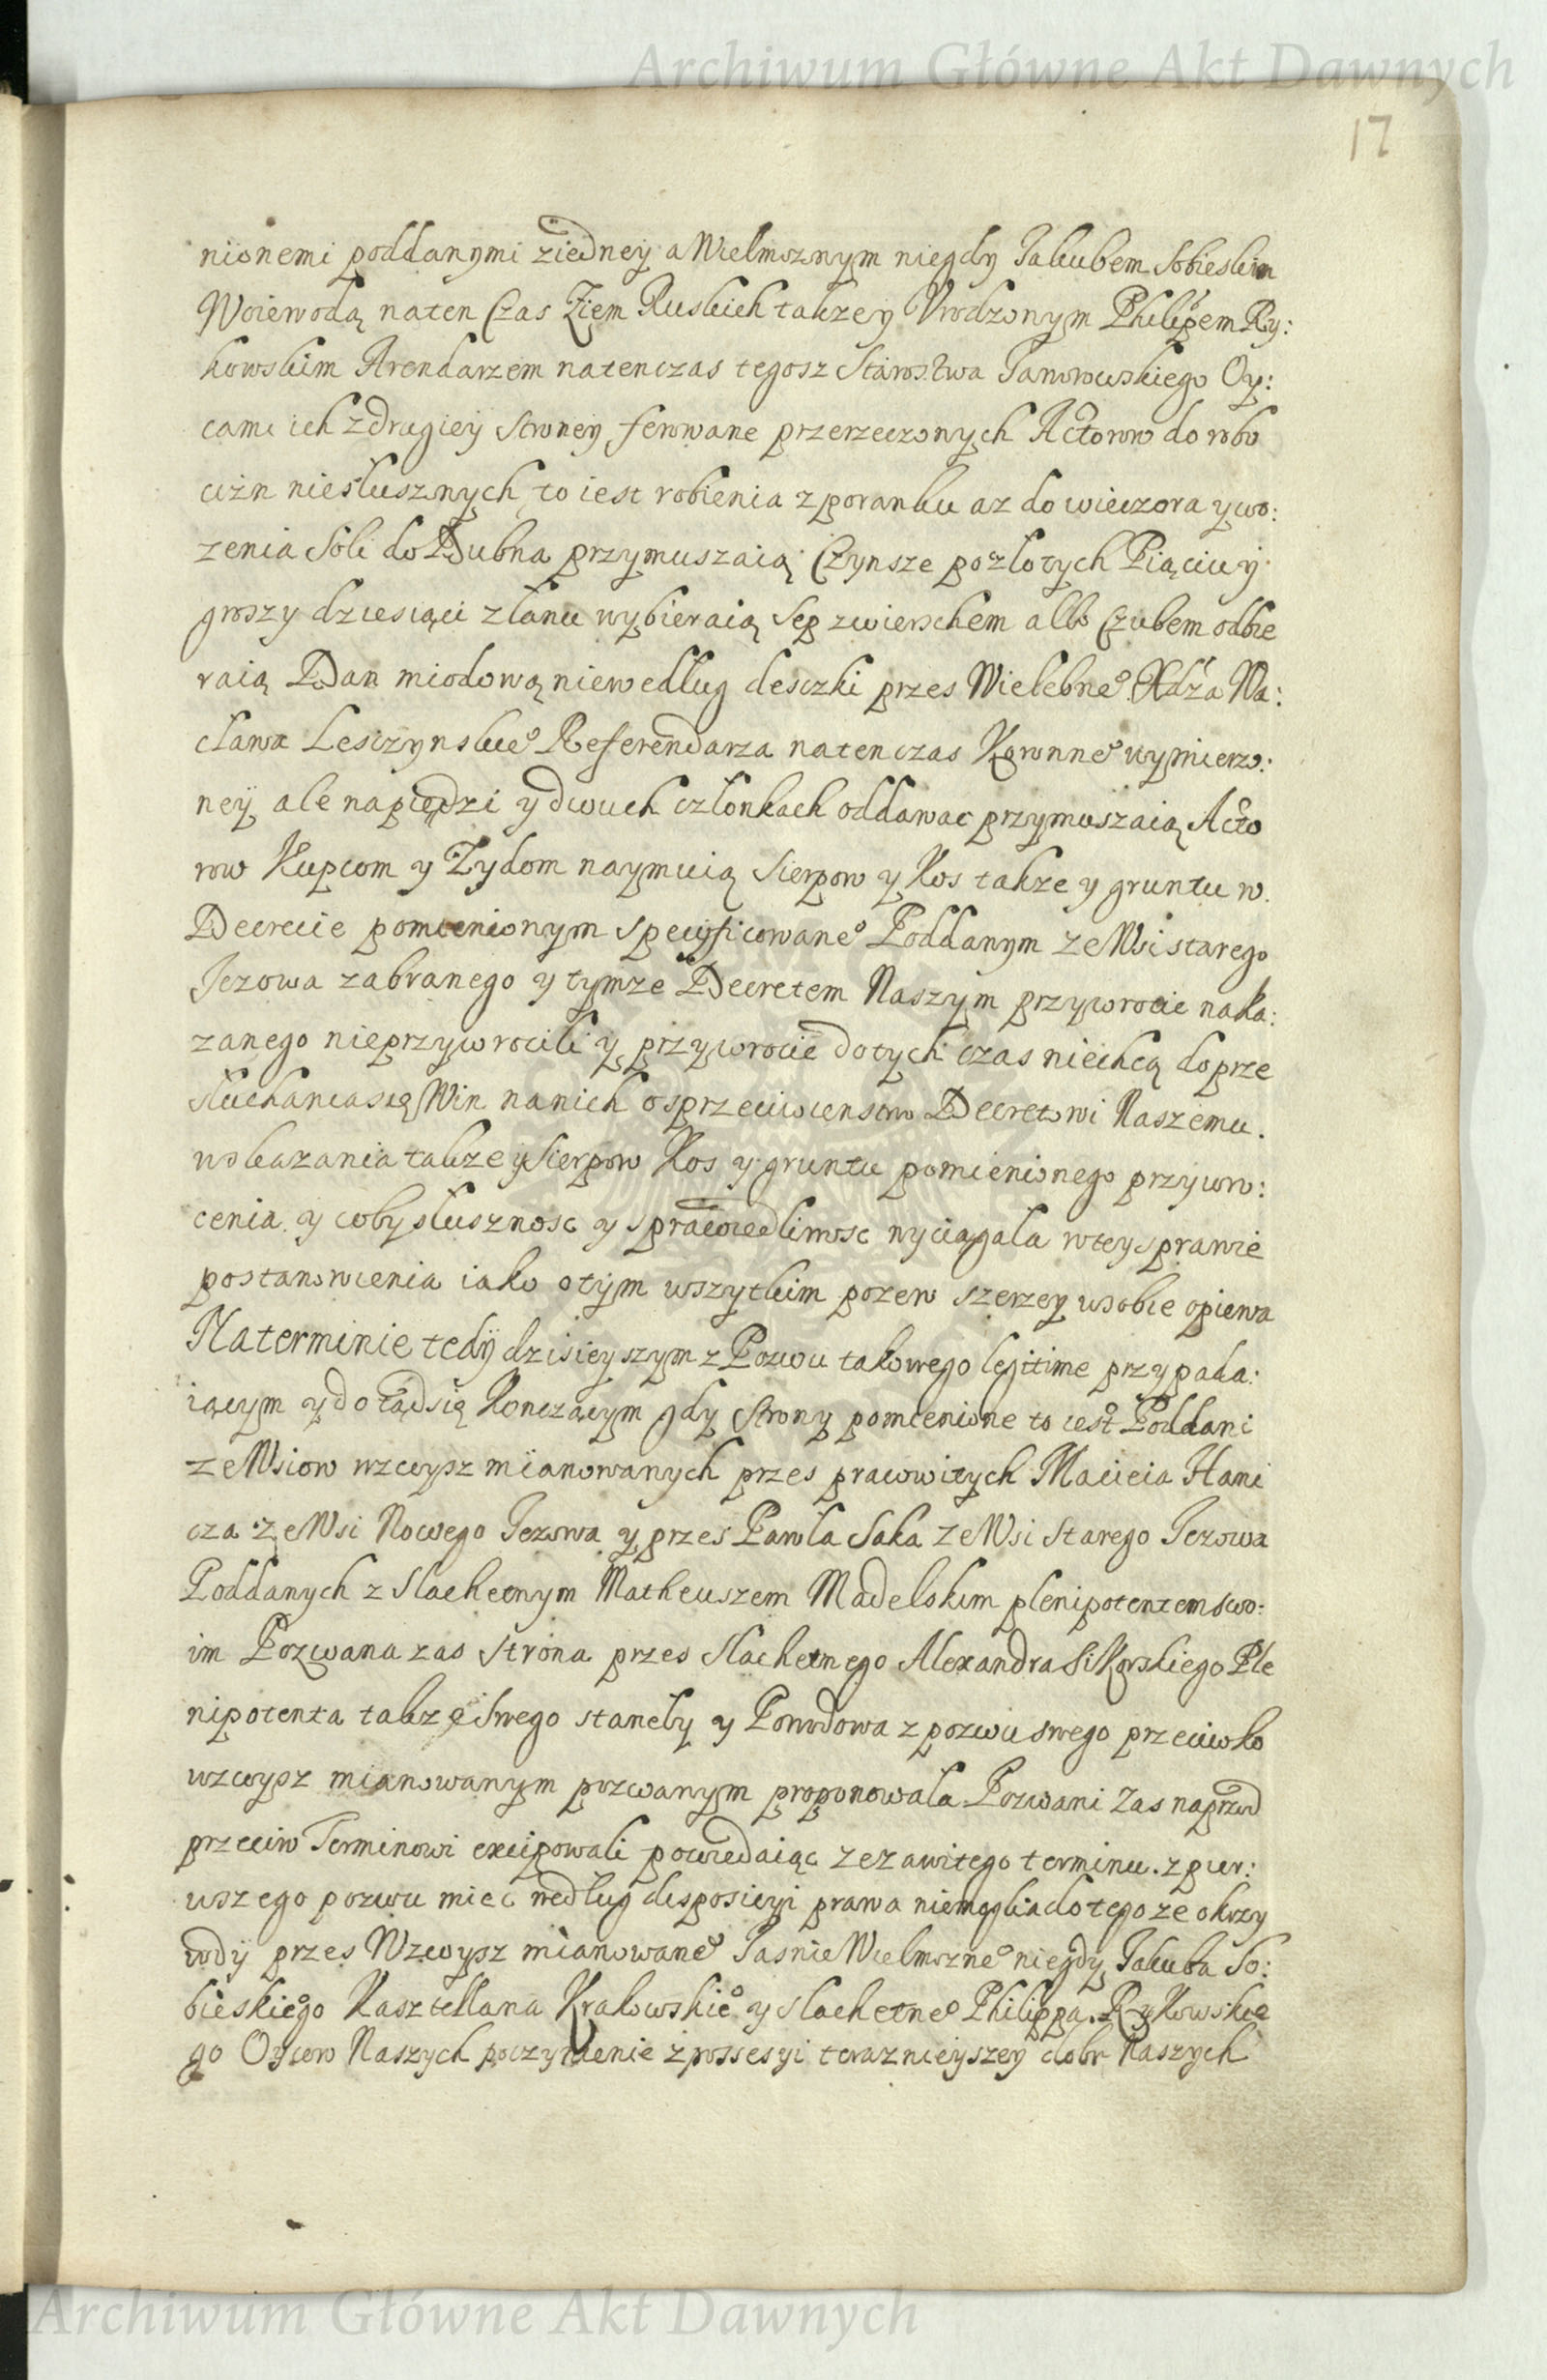 Archiwum Główne Akt Dawnych
17
nionemi poddanymi ziedney a Wielmoznym niegdy Jakubem Sobieskim
Woiewodą naten Czas Ziem Ruskich takzey Vrodzonym Philipem Ry:
kowskim Arendarzem natenczas tegosz Starostwa Janowskiego Oy:
cami ich zdrugiey strony ferowane przerzeczonych Actorow do robo
cizn niesłusznych to iest robienia z poranku az do wieczora y wo:
zenia Soli do Dubna przymuszaią Czynsze po złotych Piąciu y
groszy dziesiąci z łanu wybieraią Sep zwierschem albo Czubem odbie
raią Dan miodową niewedług desczki przes Wielebne° Xdza Wa:
cława Lesczynskie° Referendarza natenczas Koronne° wymierzo:
ney ale na piędzi y dwuch członkach oddawac przymuszaią Acto
row Kupcom y Zydom naymuią Sierpow y Kos takze y gruntu w
Decrecie pomienionym specyficowane° Poddanym ze Wsi starego
Jezowa zabranego y tymze Decretem Naszym przywrocic naka:
zanego nieprzywrocili y przywrocic dotych czas niechcą do prze
słuchania się Win na nich o sprzeciwienstwo Decretowi Naszemu.
wskazania takze y Sierpow Kos y gruntu pomienionego przywro:
cenia y coby słusznosc y sprawiedliwosc wyciągała wtey sprawie
postanowienia iako otym wszytkim pozew szerzey wsobie opiewa
Na terminie tedy dzisieyszym z Pozwu takowego legitime przypada:
iącym y do tąd się Konczącym gdy Strony pomienione to iest Poddani
ze Wsiow wzwysz mianowanych przes pracowitych Macieia Hani
cza ze Wsi Nowego Jezowa y przes Pawła Saka ze Wsi Starego Jezowa
Poddanych z Slachetnym Matheuszem Madelskim plenipotentem swo:
im Pozwana zas Strona przes Slachetnego Alexandra Sikorskiego Ple
nipotenta takze Swego staneły y Powodowa z pozwu swego przeciwko
wzwysz mianowanym pozwanym proponowała Pozwani Zas naprzod
przeciw Terminowi excipowali powiedaiąc ze zawitego terminu z pier:
wszego pozwu miec według disposicyi prawa niemogli a do tego ze o krzy
wdy przes Wzwysz mianowane° Jasnie Wielmozne° niegdy Jakuba So:
bieskiego Kasztellana Krakowskie° y slachetne° Philippa Rykowskie
go Oycow Naszych poczynienie z possesyi teraznieyszey dobr Naszych
Archiwum Główne Akt Dawnych